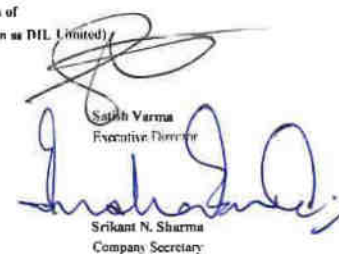 s of
n as DIL Limited)
Satish Varma
Executive Director
Srikant N. Sharma
Company Secretary